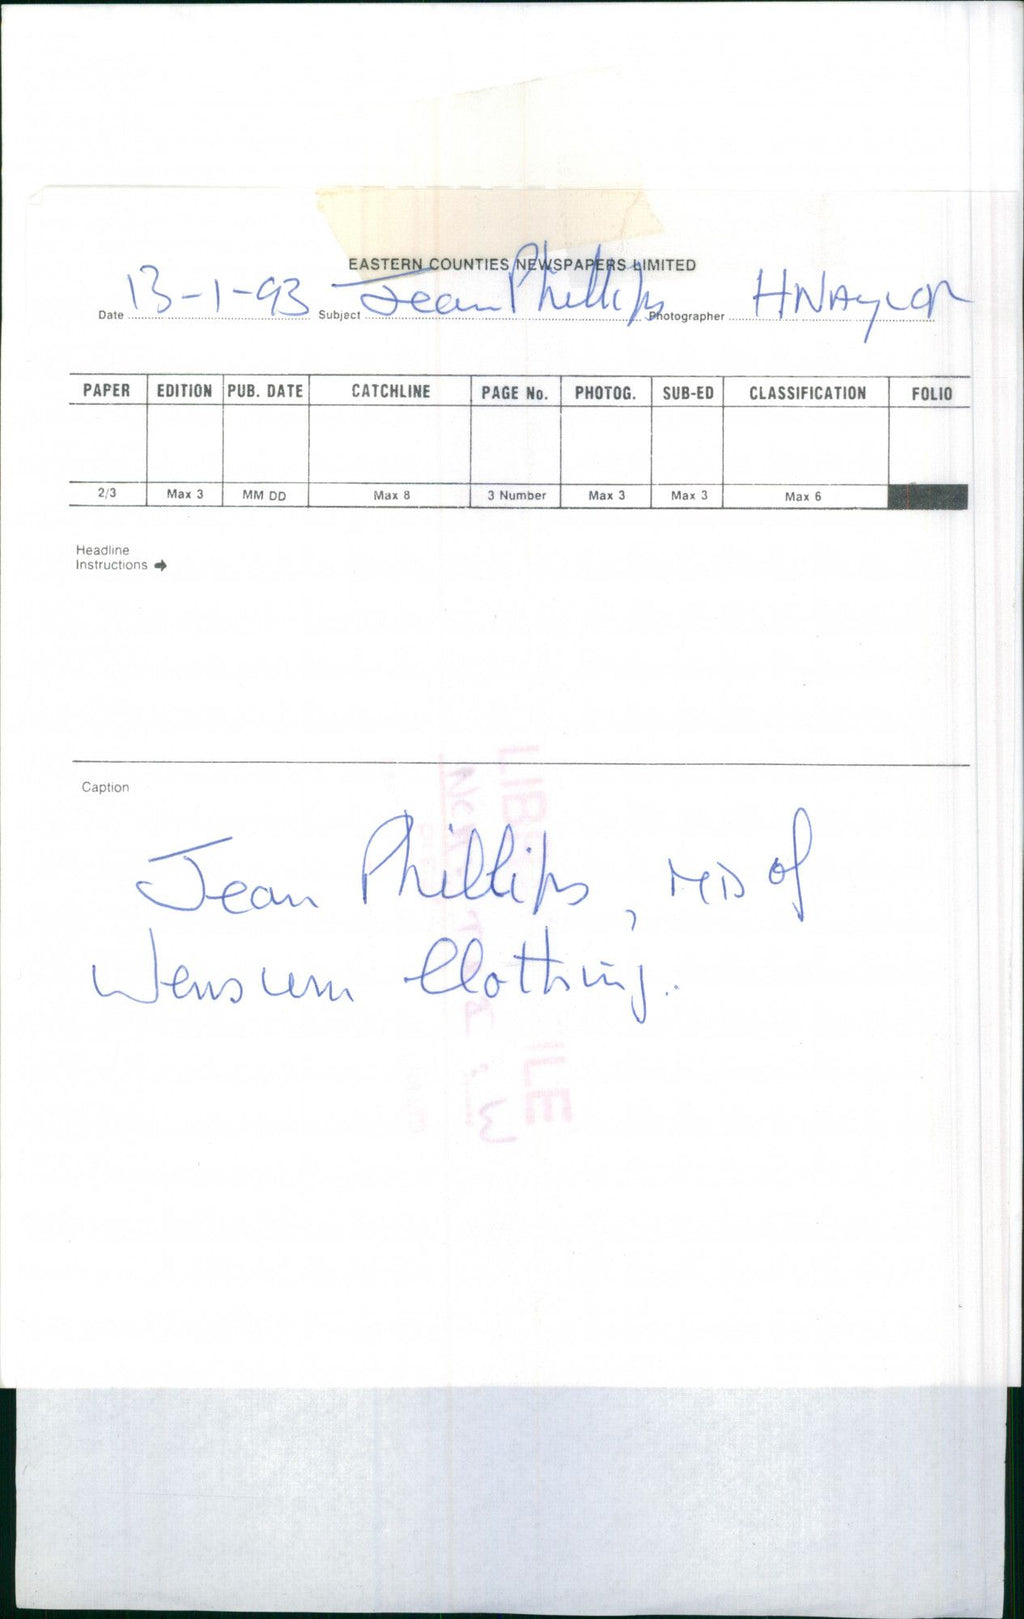 EASTERN COUNTIES NEWSPAPERS LIMITED
Date 13-1-93 Subject Jean Phillips Photographer HNAYLOR
PAPER EDITION PUB. DATE CATCHLINE PAGE No. PHOTOG. SUB-ED CLASSIFICATION FOLIO
2/3 Max 3 MM DD Max 8 3 Number Max 3 Max 3 Max 6
Headline
Instructions →
Caption
Jean Phillips, MD of
Wensum Clothing.